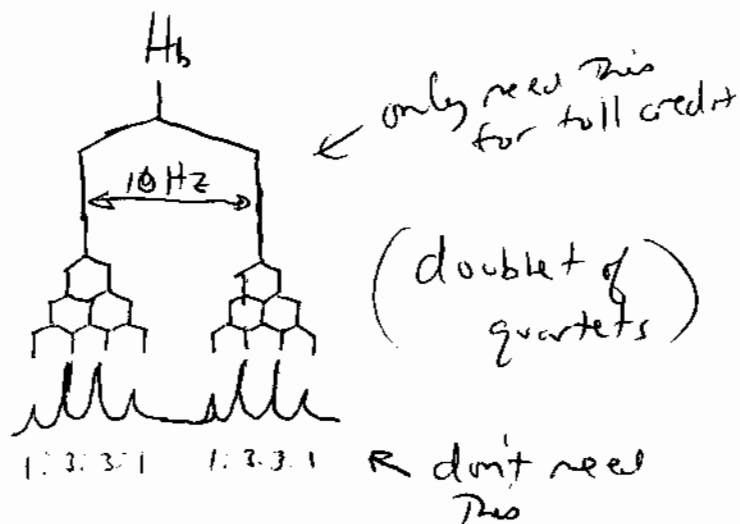 Hb
only need this
for full credit
10 Hz
(doublet of
quartets)
1:3:3:1 1:3:3:1
don't need
this